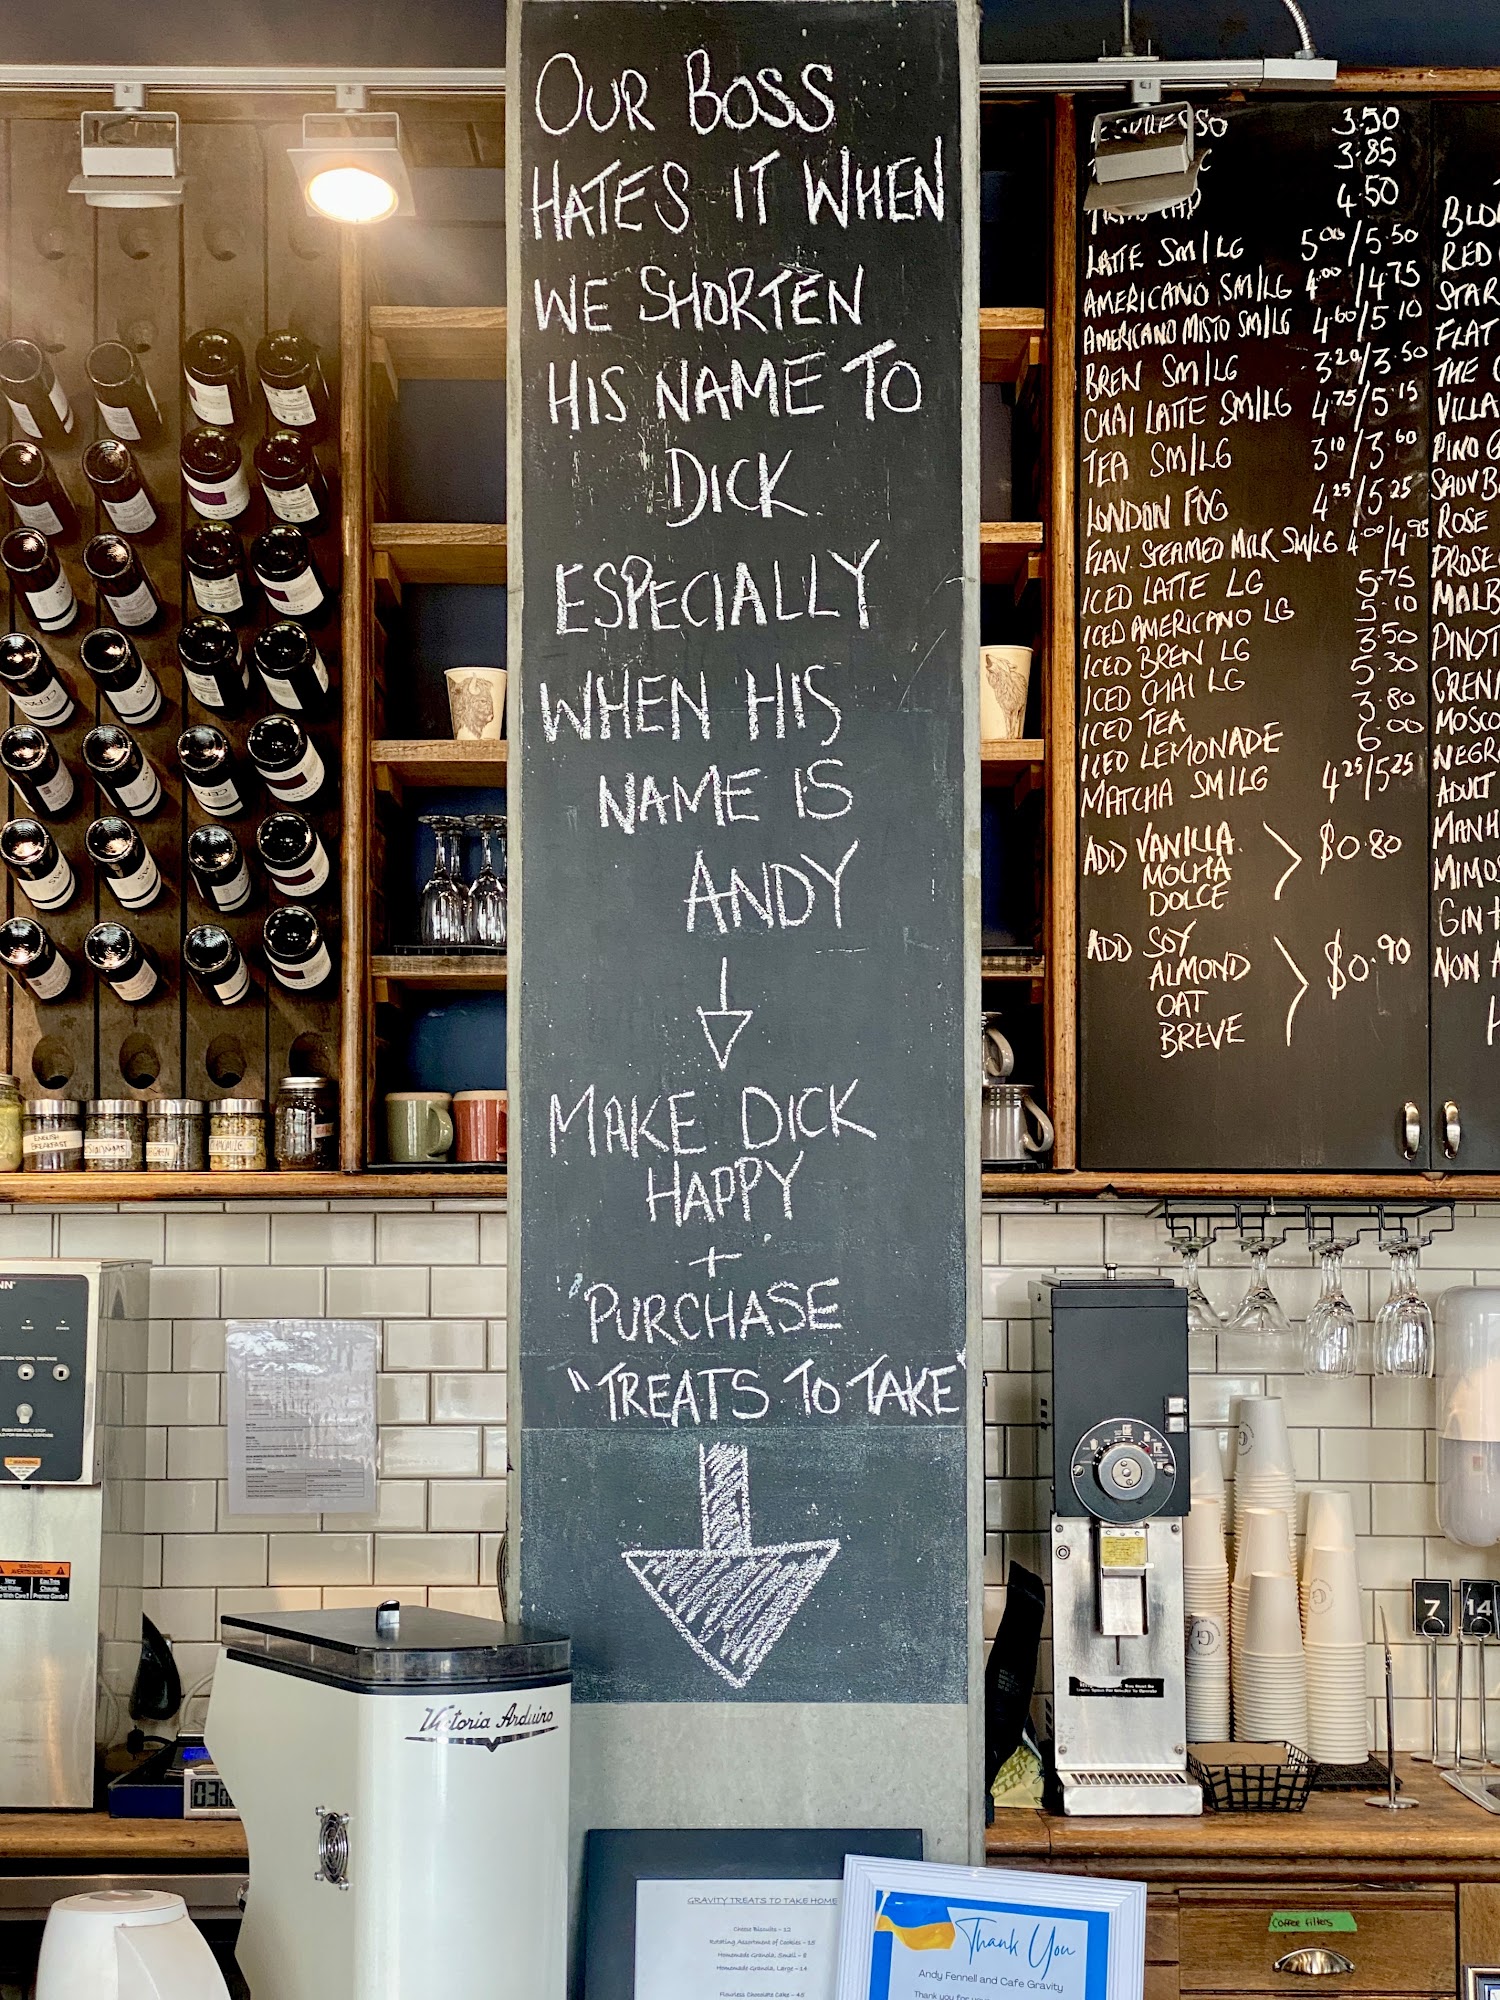 OUR BOSS
HATES IT WHEN
WE SHORTEN
HIS NAME TO
DICK
ESPECIALLY
WHEN HIS
NAME IS
ANDY
MAKE DICK
HAPPY
+
PURCHASE
"TREATS TO TAKE"
3.50
3.85
4.50
LATTE SM/LG 5.00/5.50
AMERICANO SM/LG 4.00/4.75
AMERICANO MISTO SM/LG 4.60/5.10
BREW SM/LG 3.20/3.50
CHAI LATTE SM/LG 4.75/5.15
TEA SM/LG 3.10/3.60
LONDON FOG 4.25/5.25
FLAV. STEAMED MILK SM/LG 4.00/4.95
ICED LATTE LG 5.75
ICED AMERICANO LG 5.10
ICED BREW LG 3.50
ICED CHAI LG 5.30
ICED TEA 3.80
ICED LEMONADE 6.00
MATCHA SM/LG 4.25/5.25
ADD VANILLA
MOCHA
DOLCE
$0.80
ADD SOY
ALMOND
OAT
BREVE
$0.90
RED
FLAT
THE
VILLA
ROSE
ENGLISH
BREAKFAST
WARNING
Victoria Arduino
7
14
Coffee filters
GRAVITY TREATS TO TAKE HOME
Cheese Biscuits - 12
Rotating Assortment of Cookies - 15
Homemade Granola, Small - 8
Homemade Granola, Large - 14
Flourless Chocolate Cake - 45
Thank You
Andy Fennell and Cafe Gravity
Thank you for